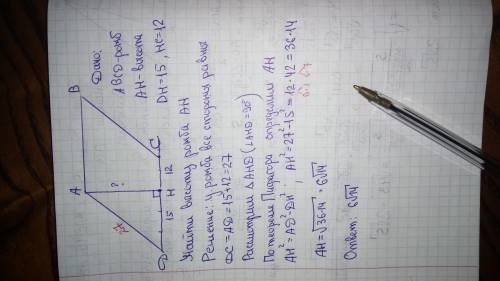 Дано:
ABCD-ромб
AH-высота
DH=15, HC=12
B
A
C
D
H
?
12
15
27
Найти высоту ромба AH
Решение: у ромба все стороны равны
DC=AD=15+12=27
Рассмотрим △AHD (∠AHD=90°)
По теореме Пифагора определим AH
AH²=AD²-DH²; AH²=27²-15²=12·42=36·14
AH=√36·14=6√14
Ответ: 6√14